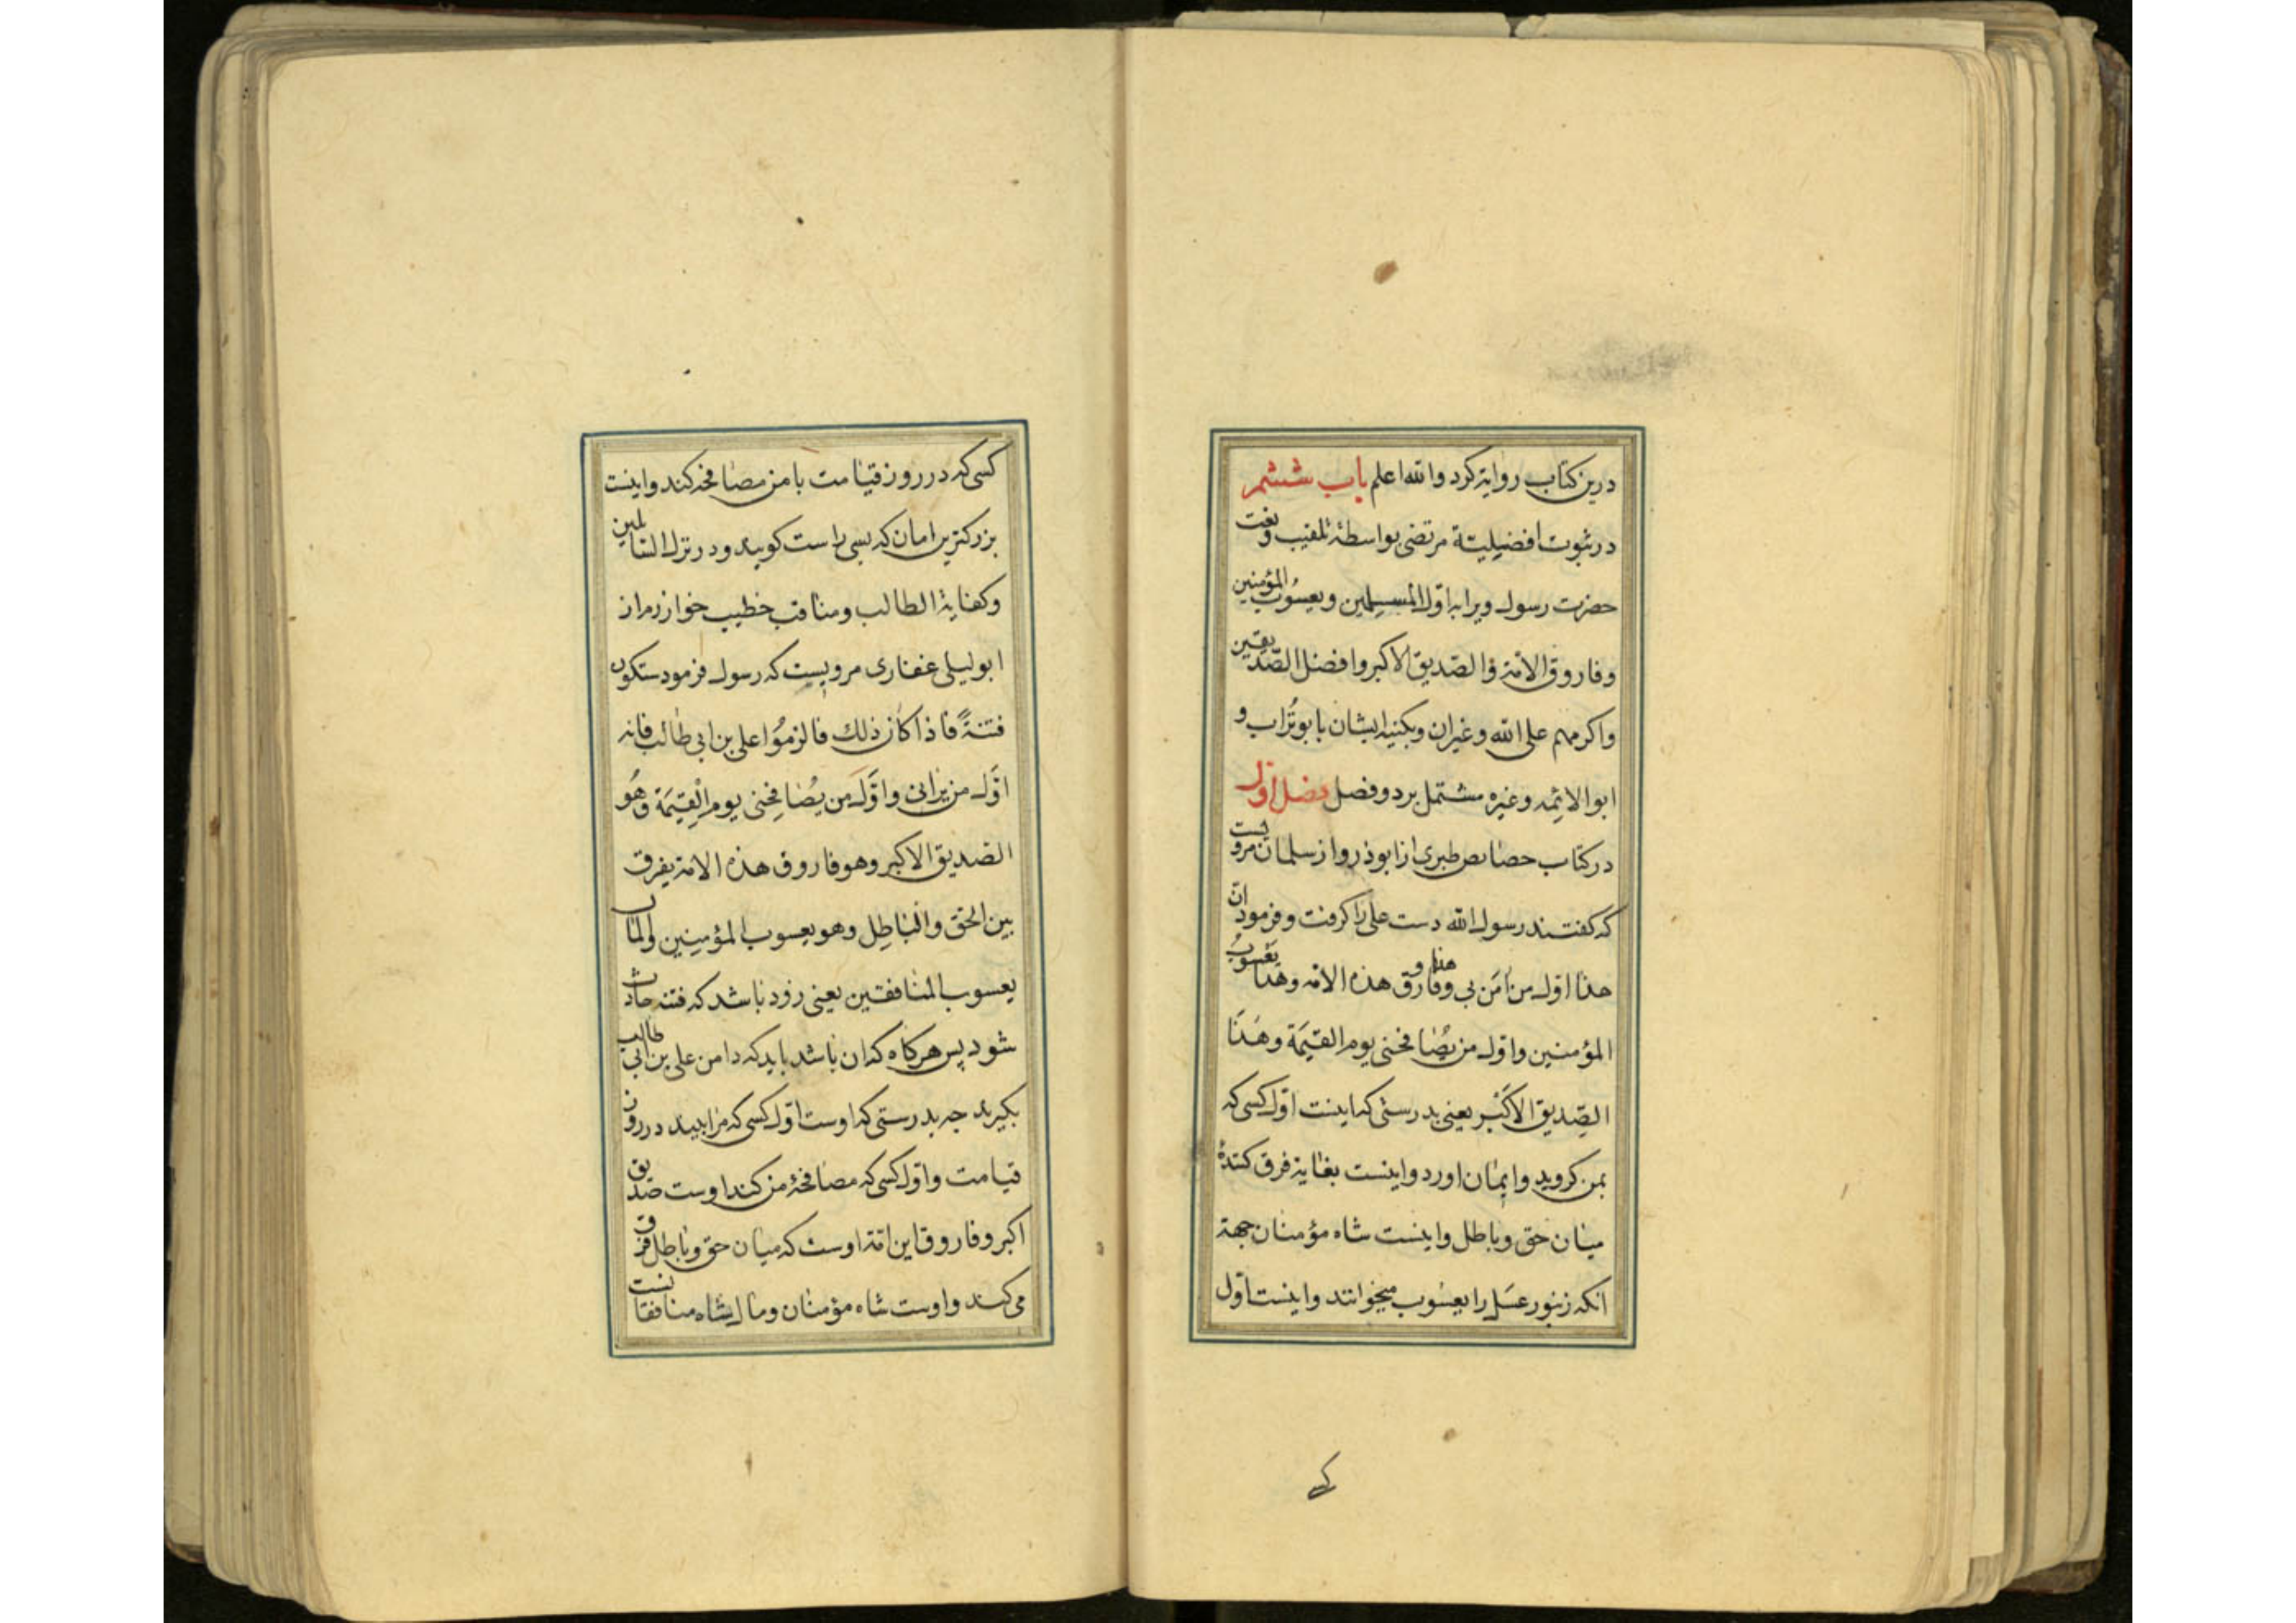 درین کتاب روایة کرد والله اعلم باب ششم
در ثبوت افضیلیتة مرتضی بواسطهٔ تلقیب و نعت
حضرت رسول ویرا به اوّل المسلمین ویعسُوب المؤمنین
وفاروق الامّة والصّدیق الاکبر وافضل الصّدیقین
واکرمهم علی الله وغیران وبکنیه ایشان بابو تُراب و
ابوالائِمه وغیره مشتمل بردو فصل فصل اوّل
در کتاب خصایص طبری از ابوذر و از سلمان مرویست
که کفتند رسول الله دست علی را کرفت و فرمود انّ
هذا اوّل من اٰمَن بی وهذا فاروق هذه الامّه وهذا یَعْسُوبُ
المؤمنین واوّل من یصُافحنی یوم القیٰمَة وهٰذَا
الصِّدیق الاکْبَر یعنی بدرستی که اینست اوّل کسی که
بمن کروید وایمان اورد واینست بغایة فرق کنندهٔ
میان حق وباطل واینست شاه مؤمنان جهة
انکه زنبور عسَل را یعسُوب میخوانند واینست اوّل
کسی که در روز قیامت با من مصافحه کند واینست
بزرکترین امان که بسی راست کوید ودر نزل السّایلین
وکفایة الطالب ومناقب خطیب خوارزم از
ابولیلی غفاری مرویست که رسول فرمود ستکون
فتنةً فاذا کان ذلك فالزموُا علی بن ابی طالب فانه
اوَّل من یَرانی واوَّلَ من یصُافِحُنی یوم الْقِیٰمَة وهُو
الصدیق الاکبر وهو فاروق هذه الامة یفرق
بین الحَق والْبَاطِل وهو یعسوب المؤمِنین والمال
یعسوب المنافقین یعنی زود باشد که فتنه حادث
شود پس هرکاه که ان باشد باید که دامن علی بن ابی طالب
بکیرید چه بدرستی که اوست اوّل کسی که مرا بیند در روز
قیامت واوّل کسی که مصافحهٔ من کند اوست صدیق
اکبر وفاروق این امّة اوست که میان حق وباطل فرق
می کند واوست شاه مؤمنان ومال شاه منافقانست